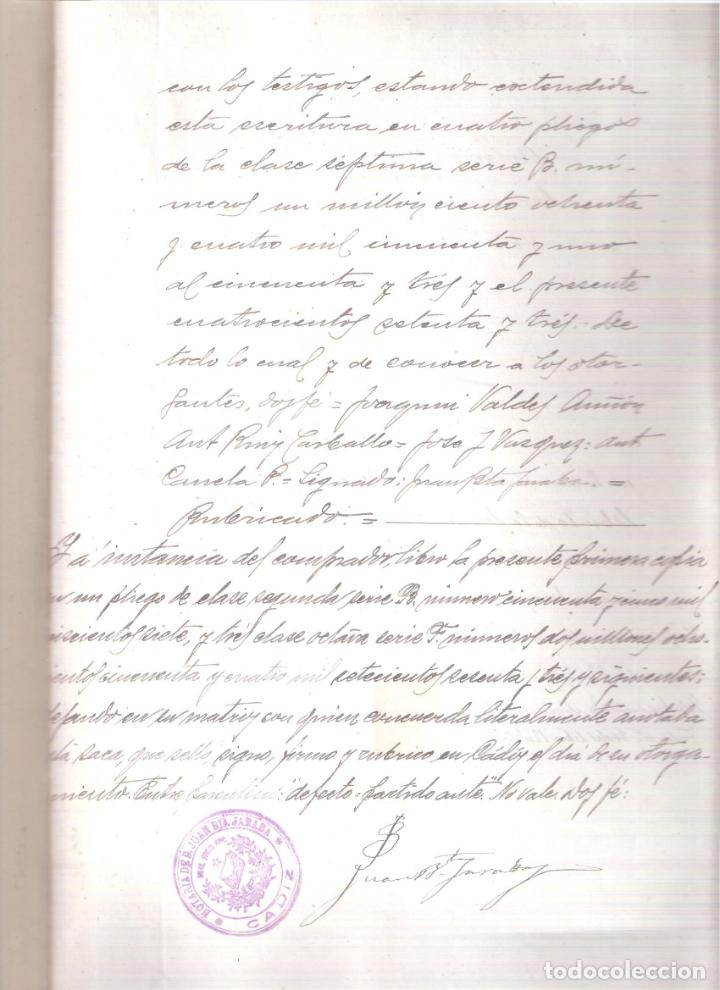 con los testigos, estando extendida
esta escritura en cuatro pliegos
de la clase séptima serie B. nú-
meros un millon ciento ochenta
y cuatro mil cincuenta y uno
al cincuenta y trés y el presente
cuatrocientos setenta y trés.- De
todo lo cual y de conocer a los otor-
gantes, doy fé = Joaquin Valdes
Ant Ruiz Carballo = Jose J Vasquez = Ant
Canela P. = Signado: Juan Bta Jarada =
Rubricado. =
Y a instancia del comprador, libro la presente primera copia
en un pliego de clase segunda serie B. número cincuenta y cinco mil
siete, y trés clase octava serie F. números dos millones
cincuenta y cuatro mil setecientos sesenta y trés y siguientes;
dejando en su matriz con quien concuerda literalmente anotada
saca, que sello, signo, firmo y rubrico, en Cádiz el dia de su otorga-
miento. Entre parentesis: "defecto = partido ante." No vale. Doy fé:
Juan Bta Jarada
NOTARIA DE D. JUAN BTA. JARADA
CADIZ
todocoleccion
todocoleccion.net